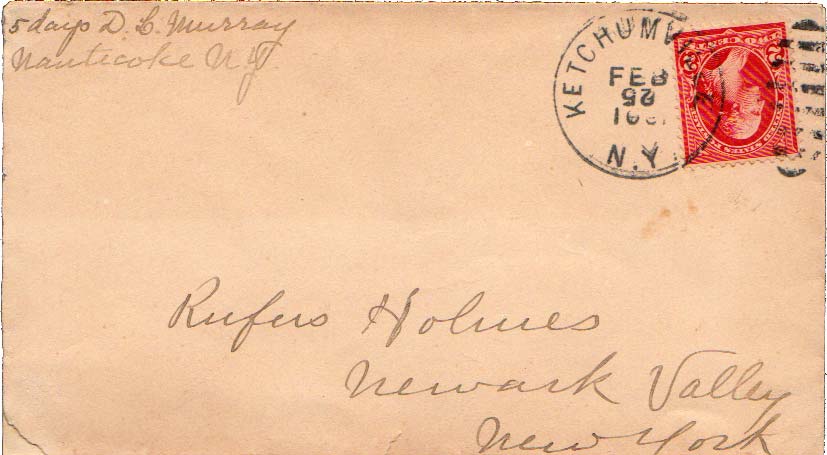 5 days D. C. Murray
Nanticoke N.Y.
KETCHUMVI
FEB
25
N.Y.
2
Rufus Holmes
Newark Valley
New York